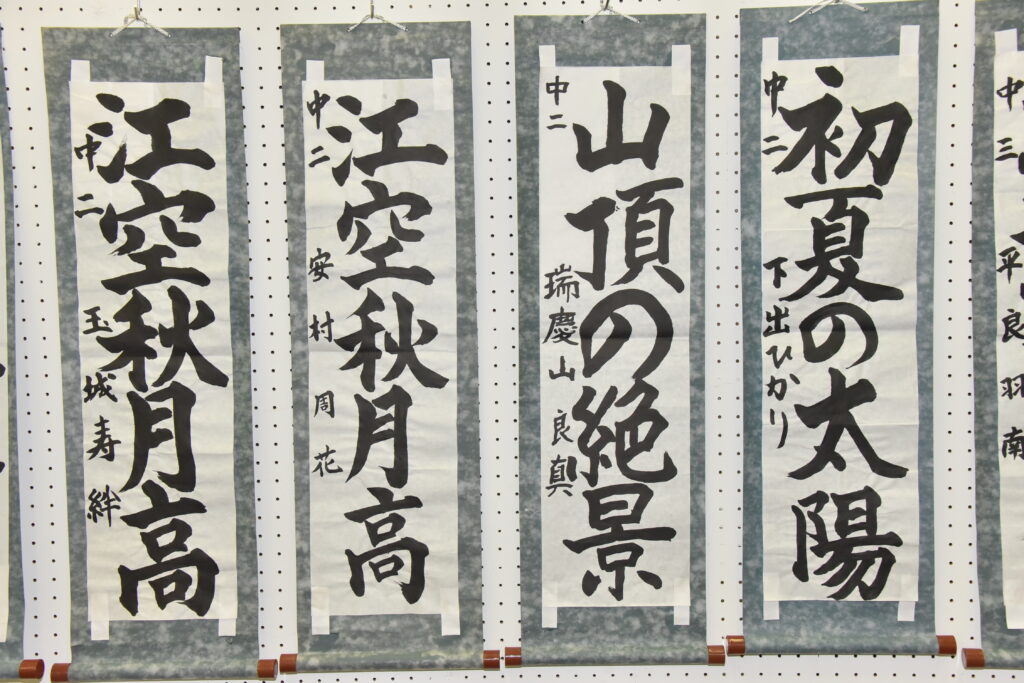 江空秋月高
中二 玉城寿絆
江空秋月高
中二 安村周花
山頂の絶景
中二 瑞慶山良真
初夏の太陽
中二 下出ひかり
中三 平良羽南